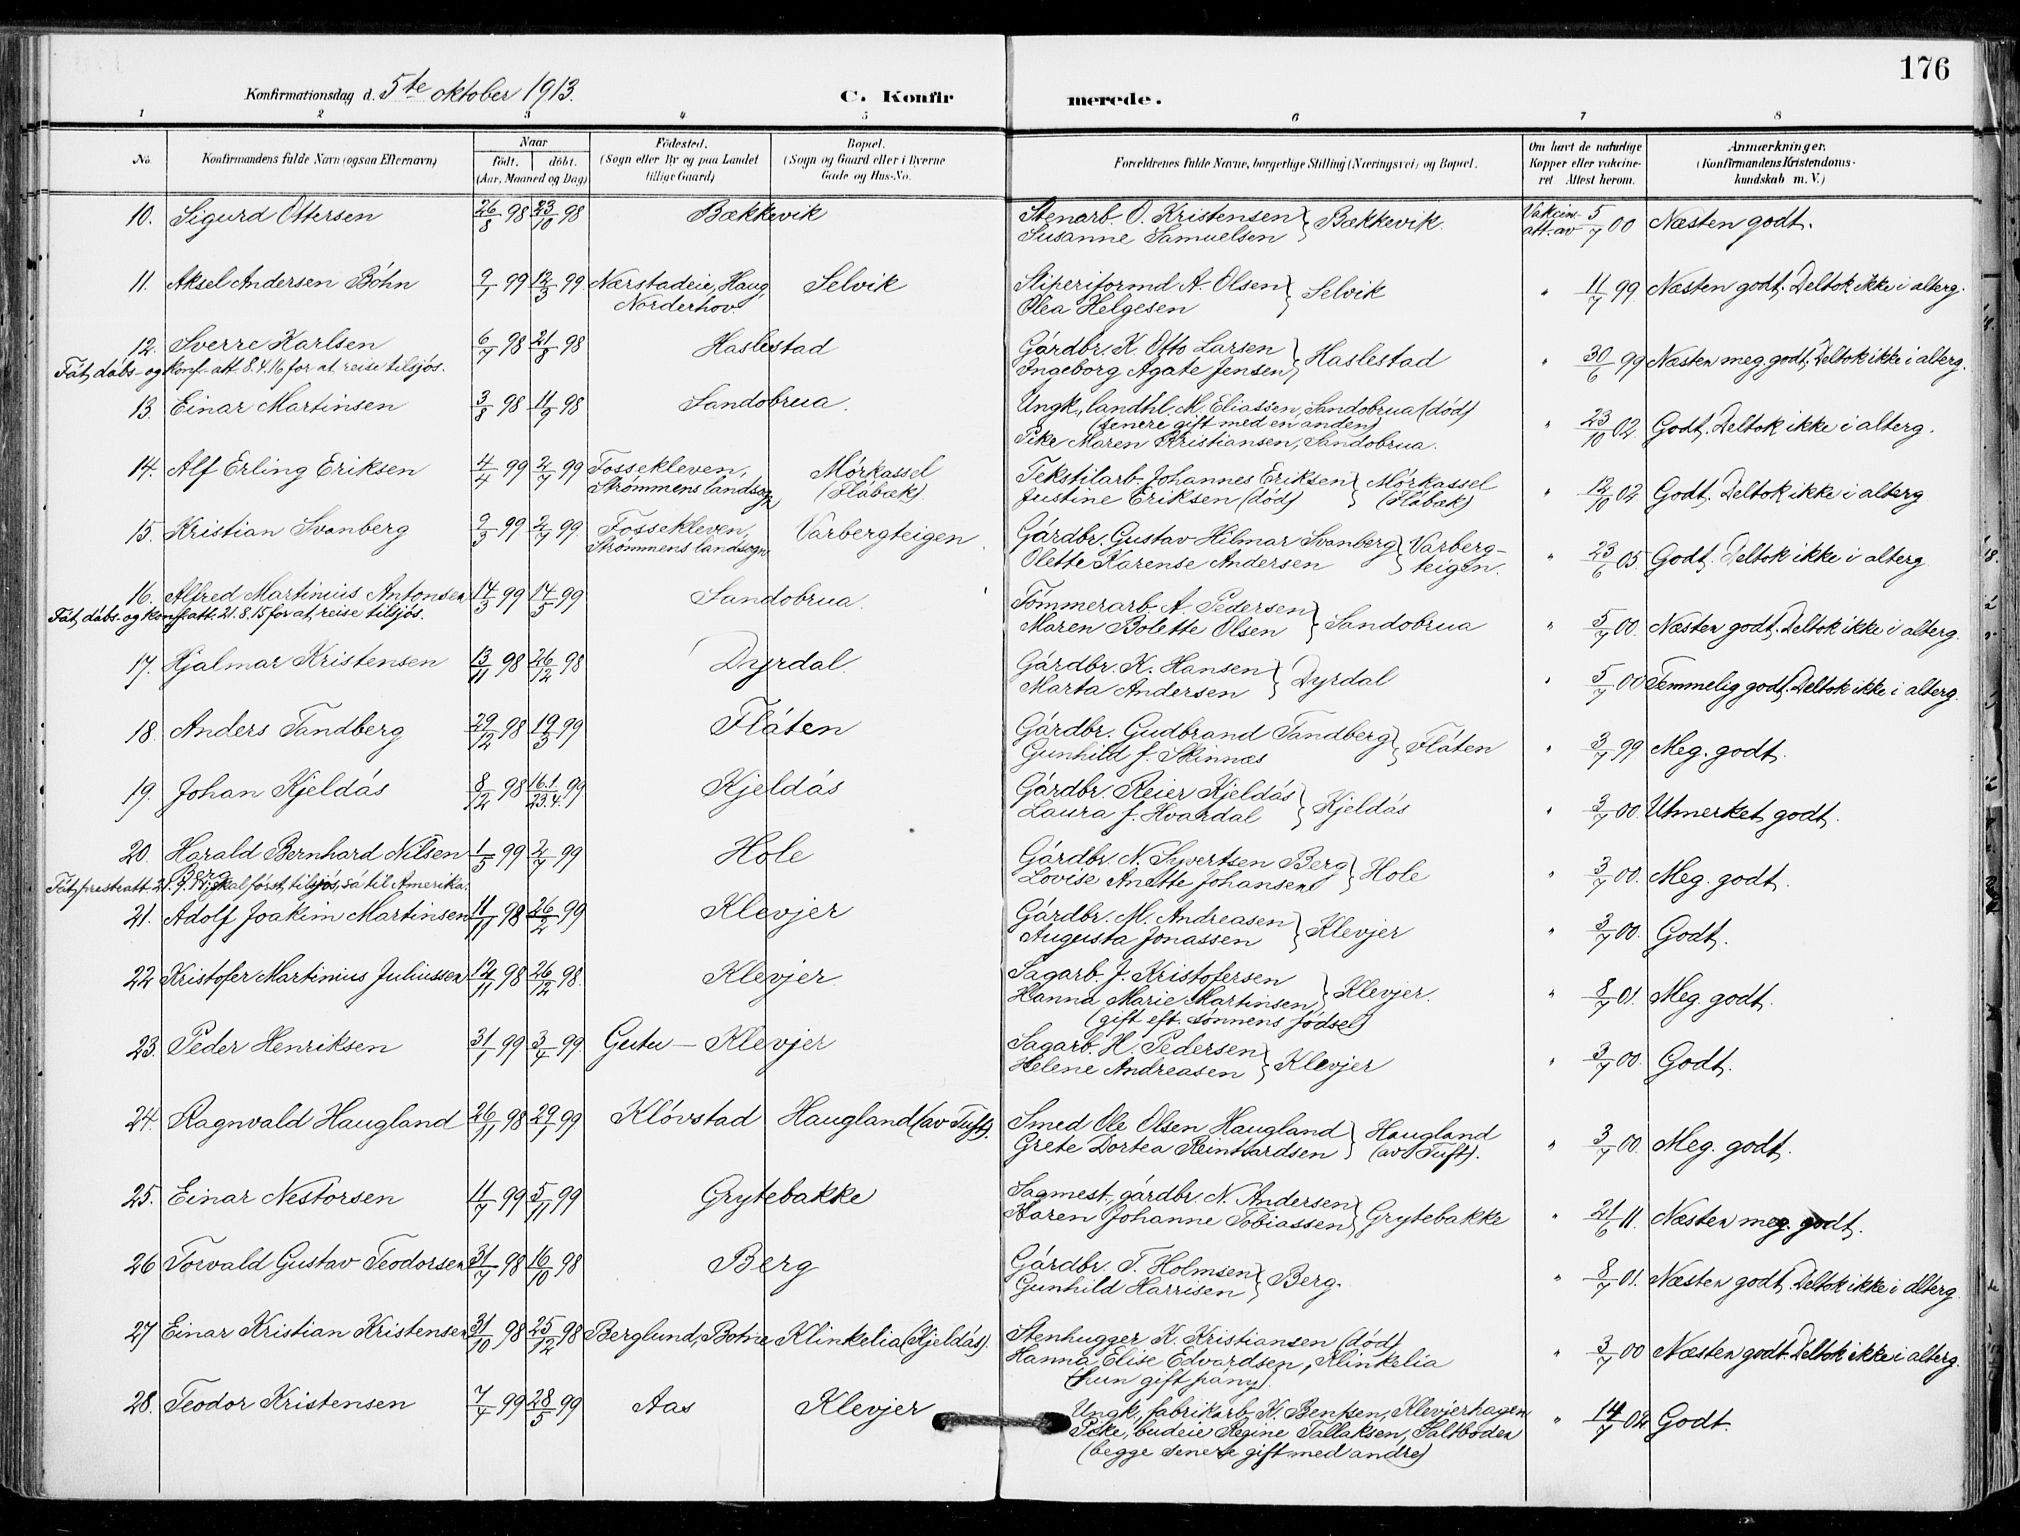 176
Konfirmationsdag d. 5te oktober 1913.
C. Konfirmerede.
1 2 3 4 5 6 7 8
No. Konfirmandens fulde Navn (ogsaa Efternavn) Naar født. døbt. (Aar, Maaned og Dag) Fødested. (Sogn eller By og paa Landet tillige Gaard) Bopæl. (Sogn og Gaard eller i Byerne Gade og Hus-No. Forældrenes fulde Navne, borgerlige Stilling (Næringsvei) og Bopæl. Om havt de naturlige Kopper eller vakcineret. Attest herom. Anmærkninger. (Konfirmandens Kristendomskundskab m. V.)
10. Sigurd Ottersen 26/8 98 23/10 98 Bækkevik Stenarb. O. Kristensen } Bækkevik. Vakcin. 5/7 00 Næsten godt.
Susanne Samuelsen att. av
11. Aksel Andersen Böhn 9/1 99 12/3 99 Nærstadeie, Haug, Selvik Sliperiformd A. Olsen } Selvik " 11/7 99 Næsten godt. Deltok ikke i alterg.
Norderhov. Olea Helgesen
12. Sverre Karlsen 6/7 98 21/8 98 Haslestad Gårdbr. K. Otto Larsen } Haslestad " 30/6 99 Næsten meg. godt. Deltok ikke i alterg.
Fåt dåbs- og konf.-att. 8.4.16 for at reise tilsjós. Ingeborg Agate Jensen
13. Einar Martinsen 3/8 98 11/9 98 Sandobrua. Ungk., landhl. M. Eliassen, Sandobrua (död)
(senere gift med en anden) " 23/10 02 Godt. Deltok ikke i alterg.
Pike Maren Kristiansen, Sandobrua.
14. Alf Erling Eriksen 4/4 99 2/7 99 Fossekleven, Mörkassel Tekstilarb. Johannes Eriksen } Mörkassel " 12/10 02 Godt. Deltok ikke i alterg
Strömmens landsogn (Flåbæk). Justine Eriksen (död) (Flåbæk)
15. Kristian Svanberg 2/3 99 2/7 99 Fossekleven, Varbergteigen. Gårdbr. Gustav Hilmar Svanberg } Varberg-
Strömmens landsogn. Olette Karense Andersen teigen. " 23/6 05. Godt. Deltok ikke i alterg
16. Alfred Martinius Antonsen 14/3 99 14/5 99 Sandobrua. Tömmerarb. A. Pedersen } Sandobrua " 5/7 00. Næsten godt. Deltok ikke i alterg.
Fåt dåbs- og konf.att. 21.8.15 for at reise tilsjós. Maren Bolette Olsen
17. Hjalmar Kristensen 13/11 98 26/12 98 Dyrdal. Gårdbr. K. Hansen } Dyrdal " 5/7 00 Temmelig godt. Deltok ikke i alterg.
Marta Andersen
18. Anders Tandberg 29/12 98 19/3 99 Flåten Gårdbr. Gudbrand Tandberg } Flåten " 3/7 99 Meg. godt.
Gunhild f. Skinnæs
19. Johan Kjeldås 8/12 98 16.1/23.4. 99 Kjeldås Gårdbr. Reier Kjeldås } Kjeldås " 3/7 00. Utmerket godt.
Laura f. Hvardal
20. Harald Bernhard Nilsen 1/5 99 2/7 99 Hole Gårdbr. N. Syvertsen Berg } Hole " 3/7 00. Meg. godt.
Berg Lovise Anette Johansen
Fåt presteatt. 21.9. skal först tilsjós, så til Amerika.
21. Adolf Joakim Martinsen 11/11 98 26/2 99 Klevjer Gårdbr. M. Andreasen } Klevjer " 3/7 00. Godt.
Augusta Jonassen
22 Kristofer Martinius Juliussen 12/11 98 26/12 98. Klevjer. Sagarb. J. Kristofersen } Klevjer. " 8/7 01. Meg. godt.
Hanna Marie Martinsen
(gift eft. sönnens födsel)
23. Peder Henriksen 31/1 99 3/4 99. Gutu – Klevjer Sagarb. H. Pedersen } Klevjer " 3/7 00. Godt.
Helene Andreasen
24. Ragnvald Haugland 26/11 98 29/1 99 Klövstad Haugland (av Tuft). Smed Ole Olsen Haugland } Haugland " 3/7 00. Meg. godt.
Grete Dortea Reinhardsen (av Tuft).
25. Einar Nestorsen 11/7 99 5/11 99 Grytebakke Sagmest., gårdbr. N. Andersen } Grytebakke " 21/6 11. Næsten meg. godt.
Karen Johanne Tobiassen
26 Torvald Gustav Teodorsen 31/7 98 16/10 98 Berg Gårdbr. T. Holmsen } Berg. " 8/7 01. Næsten godt. Deltok ikke i alterg.
Gunhild Harrisen
27 Einar Kristian Kristensen 31/10 98 25/12 98 Berglund, Botne Klinkelia (Kjeldås). Stenhugger K. Kristiansen (död) " 3/7 00 Næsten godt. Deltok ikke i alterg.
Hanna Elise Edvardsen, Klinkelia
(hun gift påny).
28. Teodor Kristensen 7/4 99 28/5 99 Aas Klevjer Ungk., fabrikarb. K. Bentsen, Klevjerhagen " 14/7 02 Godt.
Pike, budeie Regine Tallaksen, Saltboden
(begge senere gift med andre)